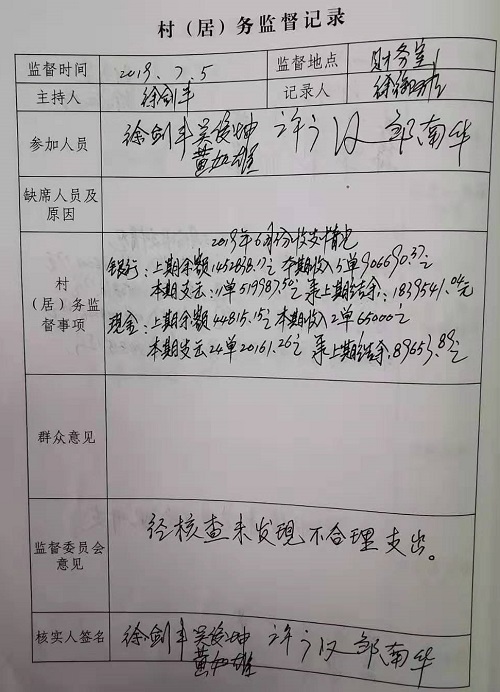 村（居）务监督记录
监督时间 2019.7.5 监督地点 财务室
主持人 徐剑丰 记录人 徐
参加人员 徐剑丰 吴俊坤 许汉 邹南华
黄如雄
缺席人员及
原因
2019年6月份收支情况
银行：上期余额1452838.17元 本期收入5单906690.37元
村 本期支出：11单519987.50元 累上期结余：1839541.04元
（居）务监
督事项 现金：上期余额44815.15元 本期收入2单65000元
本期支出24单20161.26元 累上期结余：89653.89元
群众意见
监督委员会 经核查未发现不合理支出。
意见
核实人签名 徐剑丰 吴俊坤 许汉 邹南华
黄如雄